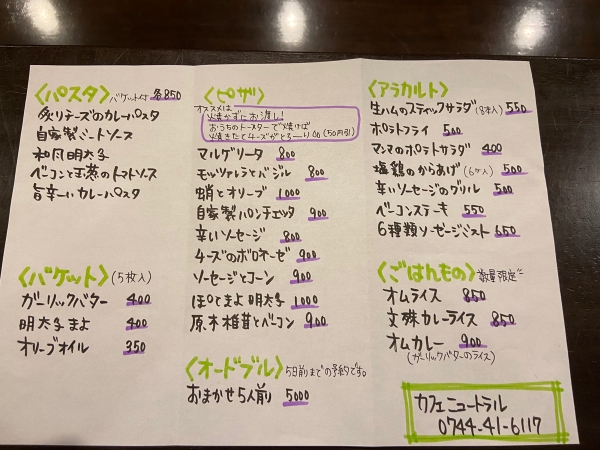 〈パスタ〉バケット付 各850
炙りチーズのカレーパスタ
自家製ミートソース
和風明太子
ベーコンと玉葱のトマトソース
旨辛ーいカレーパスタ
〈バケット〉(5枚入)
ガーリックバター 400
明太子まよ 400
オリーブオイル 350
〈ピザ〉
オススメは
焼かずにお渡し!
おうちのトースターで焼けば
焼きたてチーズがとろーり (50円引)
マルゲリータ 800
モッツァレラとバジル 800
蛸とオリーブ 1000
自家製パンチェッタ 900
辛いソーセージ 800
4チーズのボロネーゼ 900
ソーセージとコーン 900
ほりとまよ明太子 1000
原木椎茸とベーコン 900
〈オードブル〉5日前までの予約です。
おまかせ5人前 5000
〈アラカルト〉
生ハムのスティックサラダ(8本入) 550
ポテトフライ 500
マンマのポテトサラダ 400
塩鶏のからあげ(6ヶ入) 500
辛いソーセージのグリル 500
ベーコンステーキ 550
6種類ソーセージミスト 650
〈ごはんもの〉数量限定!!
オムライス 850
文殊カレーライス 850
オムカレー 900
(ガーリックバターのライス)
カフェニュートラル
0744-41-6117